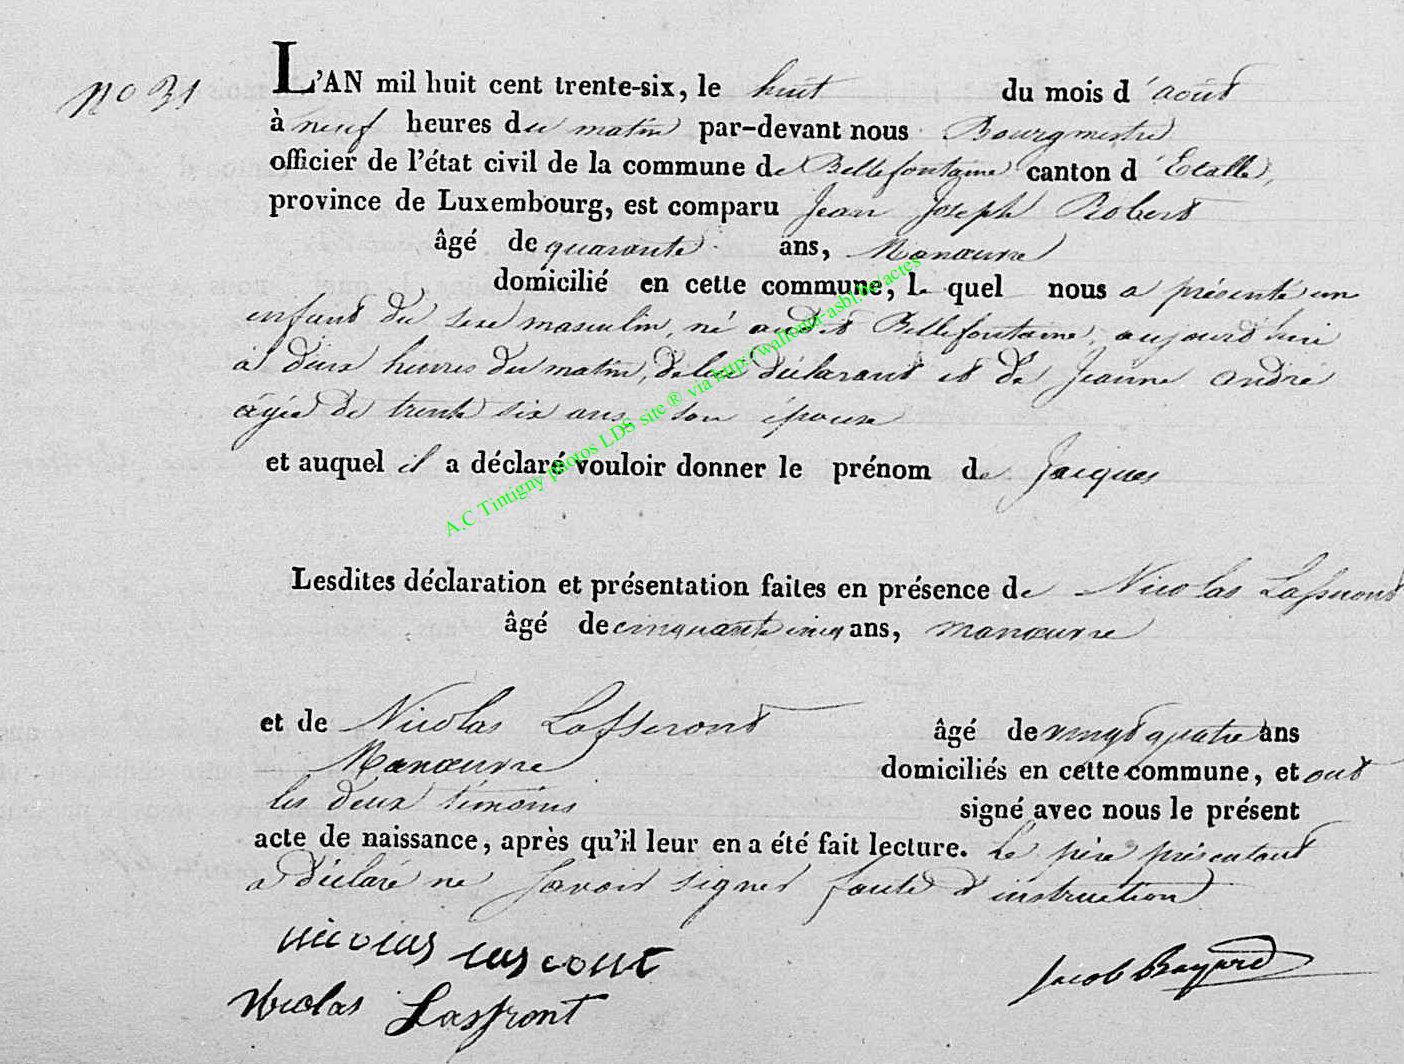 No 31
L'AN mil huit cent trente-six, le huit du mois d'août
à neuf heures du matin par-devant nous Bourgmestre
officier de l'état civil de la commune de Bellefontaine canton d'Etalle,
province de Luxembourg, est comparu Jean Joseph Robert
âgé de quarante ans, Manœuvre
domicilié en cette commune, le quel nous a présenté un
enfant du sexe masculin, né audit Bellefontaine, aujourd'hui
à deux heures du matin, de lui déclarant et de Jeanne André
âgée de trente six ans, son épouse
et auquel il a déclaré vouloir donner le prénom de Jacques
Lesdites déclaration et présentation faites en présence de Nicolas
âgé de cinquante cinq ans, manœuvre
et de Nicolas âgé de vingt quatre ans
Manœuvre domiciliés en cette commune, et ont
les deux témoins signé avec nous le présent
acte de naissance, après qu'il leur en a été fait lecture. Le père présentant
a déclaré ne savoir signer faute d'instruction
nicolas
Nicolas Lasfront
Jacob Bayard
A.C Tintigny photos LDS site ® via http://wallonia-asbl.be/actes